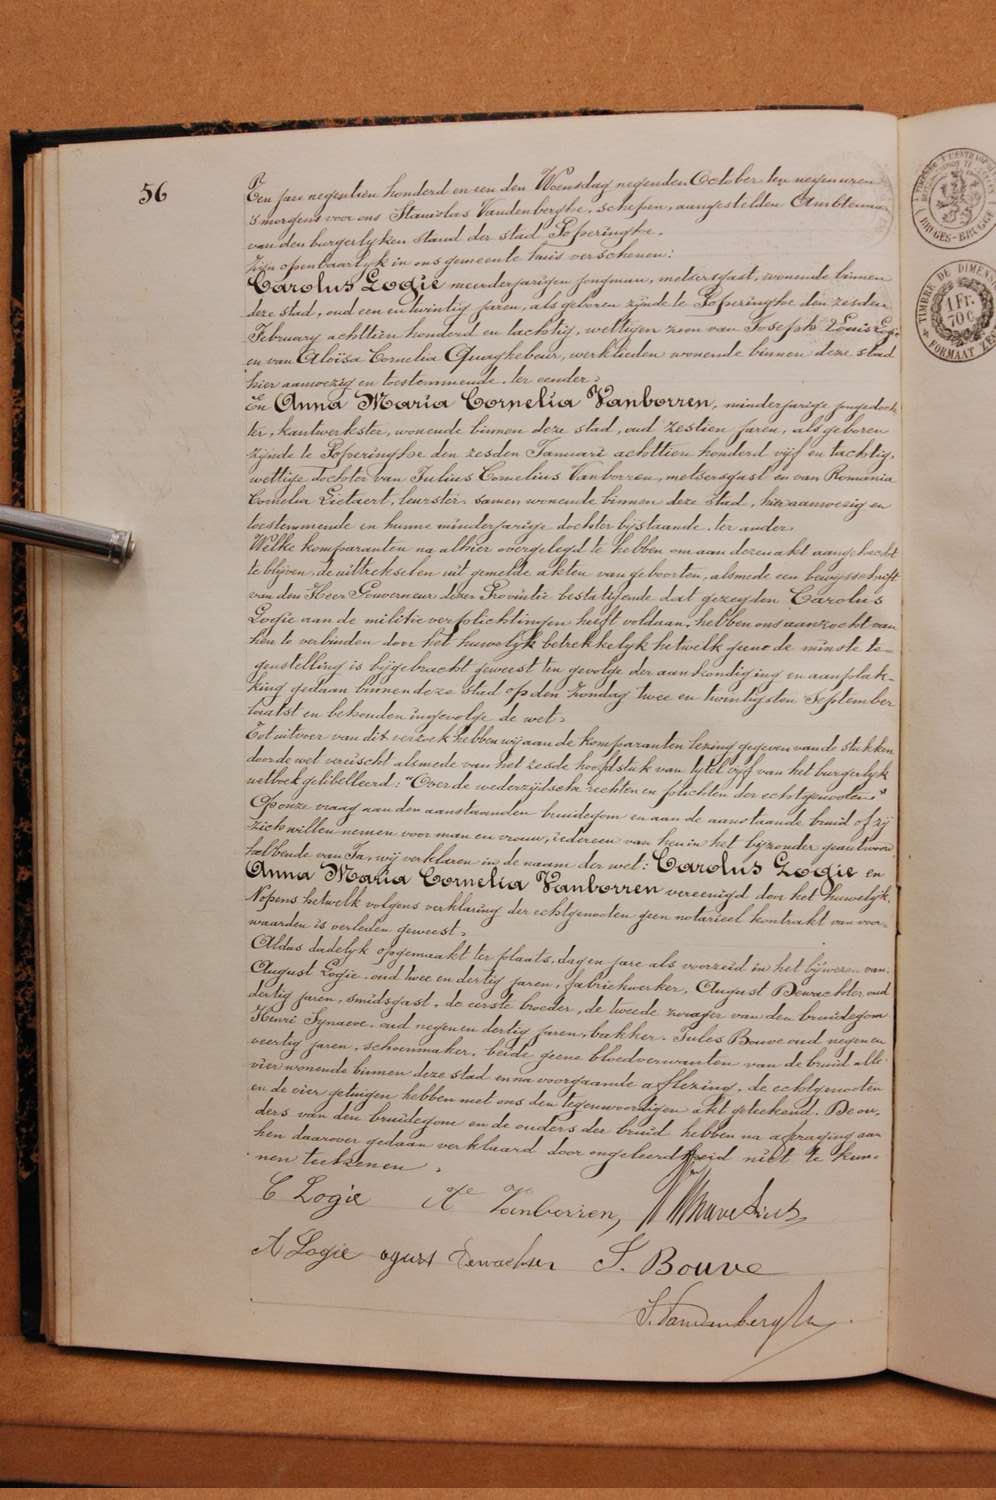 56
Een jare negentien honderd en een den Woensdag negenden October ten negen uren
's morgens voor ons Stanislas Vandenberghe, schepen, aangestelden Ambtenaar
van den burgerlyken stand der stad Poperinghe.
Zyn openbaarlyk in ons gemeente huis verschenen:
Carolus Logie meerderjarigen jongman, metsersgast, wonende binnen
deze stad, oud een en twintig jaren, als geboren zynde te Poperinghe den zesden
February achttien honderd en tachtig, wettigen zoon van Joseph Louis Logie
en van Aloïsa Cornelia Quaghebeur, werklieden wonende binnen deze stad
hier aanwezig en toestemmende. ter eender.
En Anna Maria Cornelia Vanborren, minderjarige jongedoch
ter, kantwerkster, wonende binnen deze stad, oud zestien jaren, als geboren
zynde te Poperinghe den zesden Januari achttien honderd vyf en tachtig,
wettige dochter van Julius Cornelius Vanborren, metsersgast en van Romania
Cornelia Lietaert, leurster, samen wonende binnen deze stad, hier aanwezig en
toestemmende en hunne minderjarige dochter bystaande. ter ander.
Welke komparanten na alhier overgelegd te hebben om aan dezen akt aangehecht
te blyven, de uittrekselen uit gemelde akten van geboorten, alsmede een bewysschrift
van den Heer Gouverneur dezer Provintie bestatigende dat gezegden Carolus
Logie aan de militie verplichtingen heeft voldaan, hebben ons aanzocht van
hen te verbinden door het huwelyk betrekkelyk hetwelk geene de minste te-
genstelling is bygebracht geweest ten gevolge der aankondiging en aanplak-
king gedaan binnen deze stad op den Zondag twee en twintigsten September
laatst en behouden ingevolge de wet.
Tot uitvoer van dit verzoek hebben wy aan de komparanten lezing gegeven van de stukken
door de wet vereischt alsmede van het zesde hoofdstuk van tytel vyf van het burgerlyk
wetboek gelibelleerd: "Over de wederzydsche rechten en plichten der echtgenooten."
Op onze vraag aan den aanstaanden bruidegom en aan de aanstaande bruid of zy
zich willen nemen voor man en vrouw, iedereen van hen in het byzonder geantwoord
hebbende van Ja, wy verklaren in de naam der wet: Carolus Logie en
Anna Maria Cornelia Vanborren vereenigd door het huwelyk.
Nopens hetwelk volgens verklaring der echtgenooten geen notarieel kontrakt van voor-
waarden is verleden geweest.
Aldus dadelyk opgemaakt ter plaats, dag en jare als voorzeid in het bywezen van:
August Logie, oud twee en dertig jaren, fabriekwerker, August Dewachter, oud
dertig jaren, smidsgast, de eerste broeder, de tweede zwager van den bruidegom
Henri Synaeve, oud negen en dertig jaren, bakker. Jules Bouve oud negen en
veertig jaren, schoenmaker, beide geene bloedverwanten van de bruid alle
vier wonende binnen deze stad en na voorgaande aflezing, de echtgenooten
en de vier getuigen hebben met ons den tegenwoordigen akt geteekend. De ou-
ders van den bruidegom en de ouders der bruid hebben na afvraging aan
hen daarover gedaan verklaard door ongeleerdheid niet te kun-
nen teekenen.
C Logie Vanborren,
A Logie ogust Dewachter J. Bouve
S. Vandenberghe
BRUGES-BRUGGE
TIMBRE DE DIMENS
1 Fr.
70 C.
FORMAAT ZEG